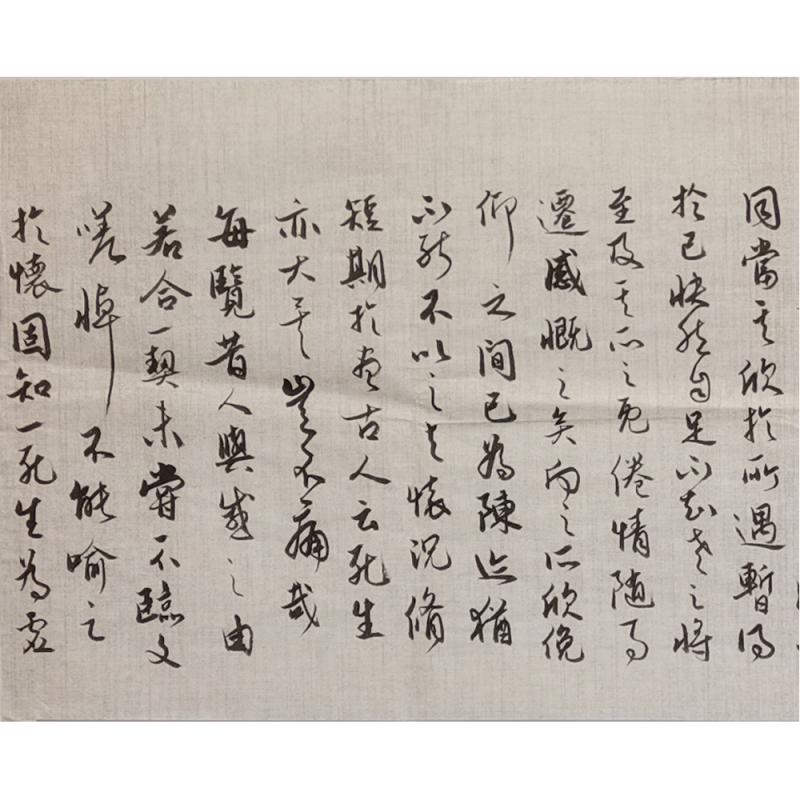 同當其欣於所遇暫得
於己快然自足不知老之將
至及其所之既倦情隨事
遷感慨之矣向之所欣俛
仰之間已為陳迹猶
不能不以之興懷況脩
短期於盡古人云死生
亦大矣豈不痛哉
每覽昔人興感之由
若合一契未嘗不臨文
嗟悼不能喻之
於懷固知一死生為虛